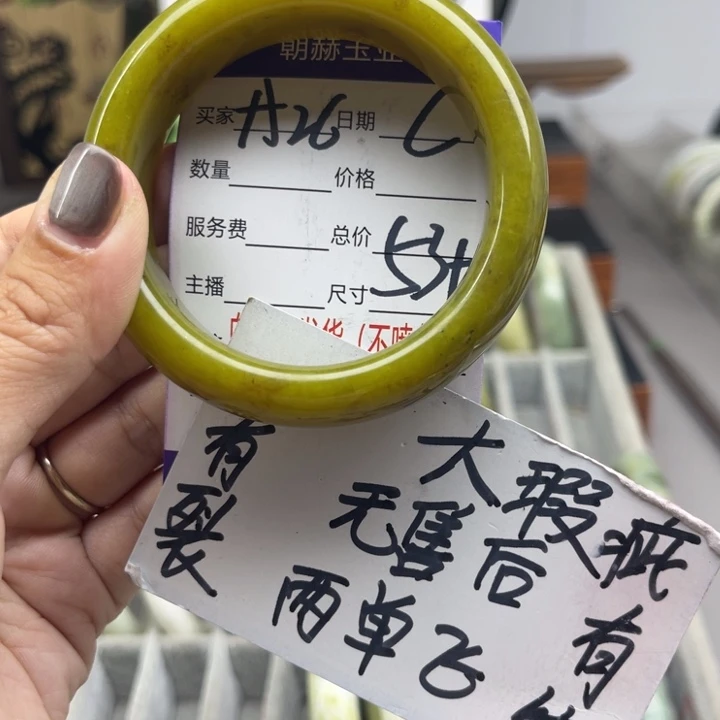 朝赫玉业
买家 A26 日期
数量 价格
服务费 总价
主播 尺寸 53+
发货（不喷
大瑕疵
有裂 无售后 有
两单飞